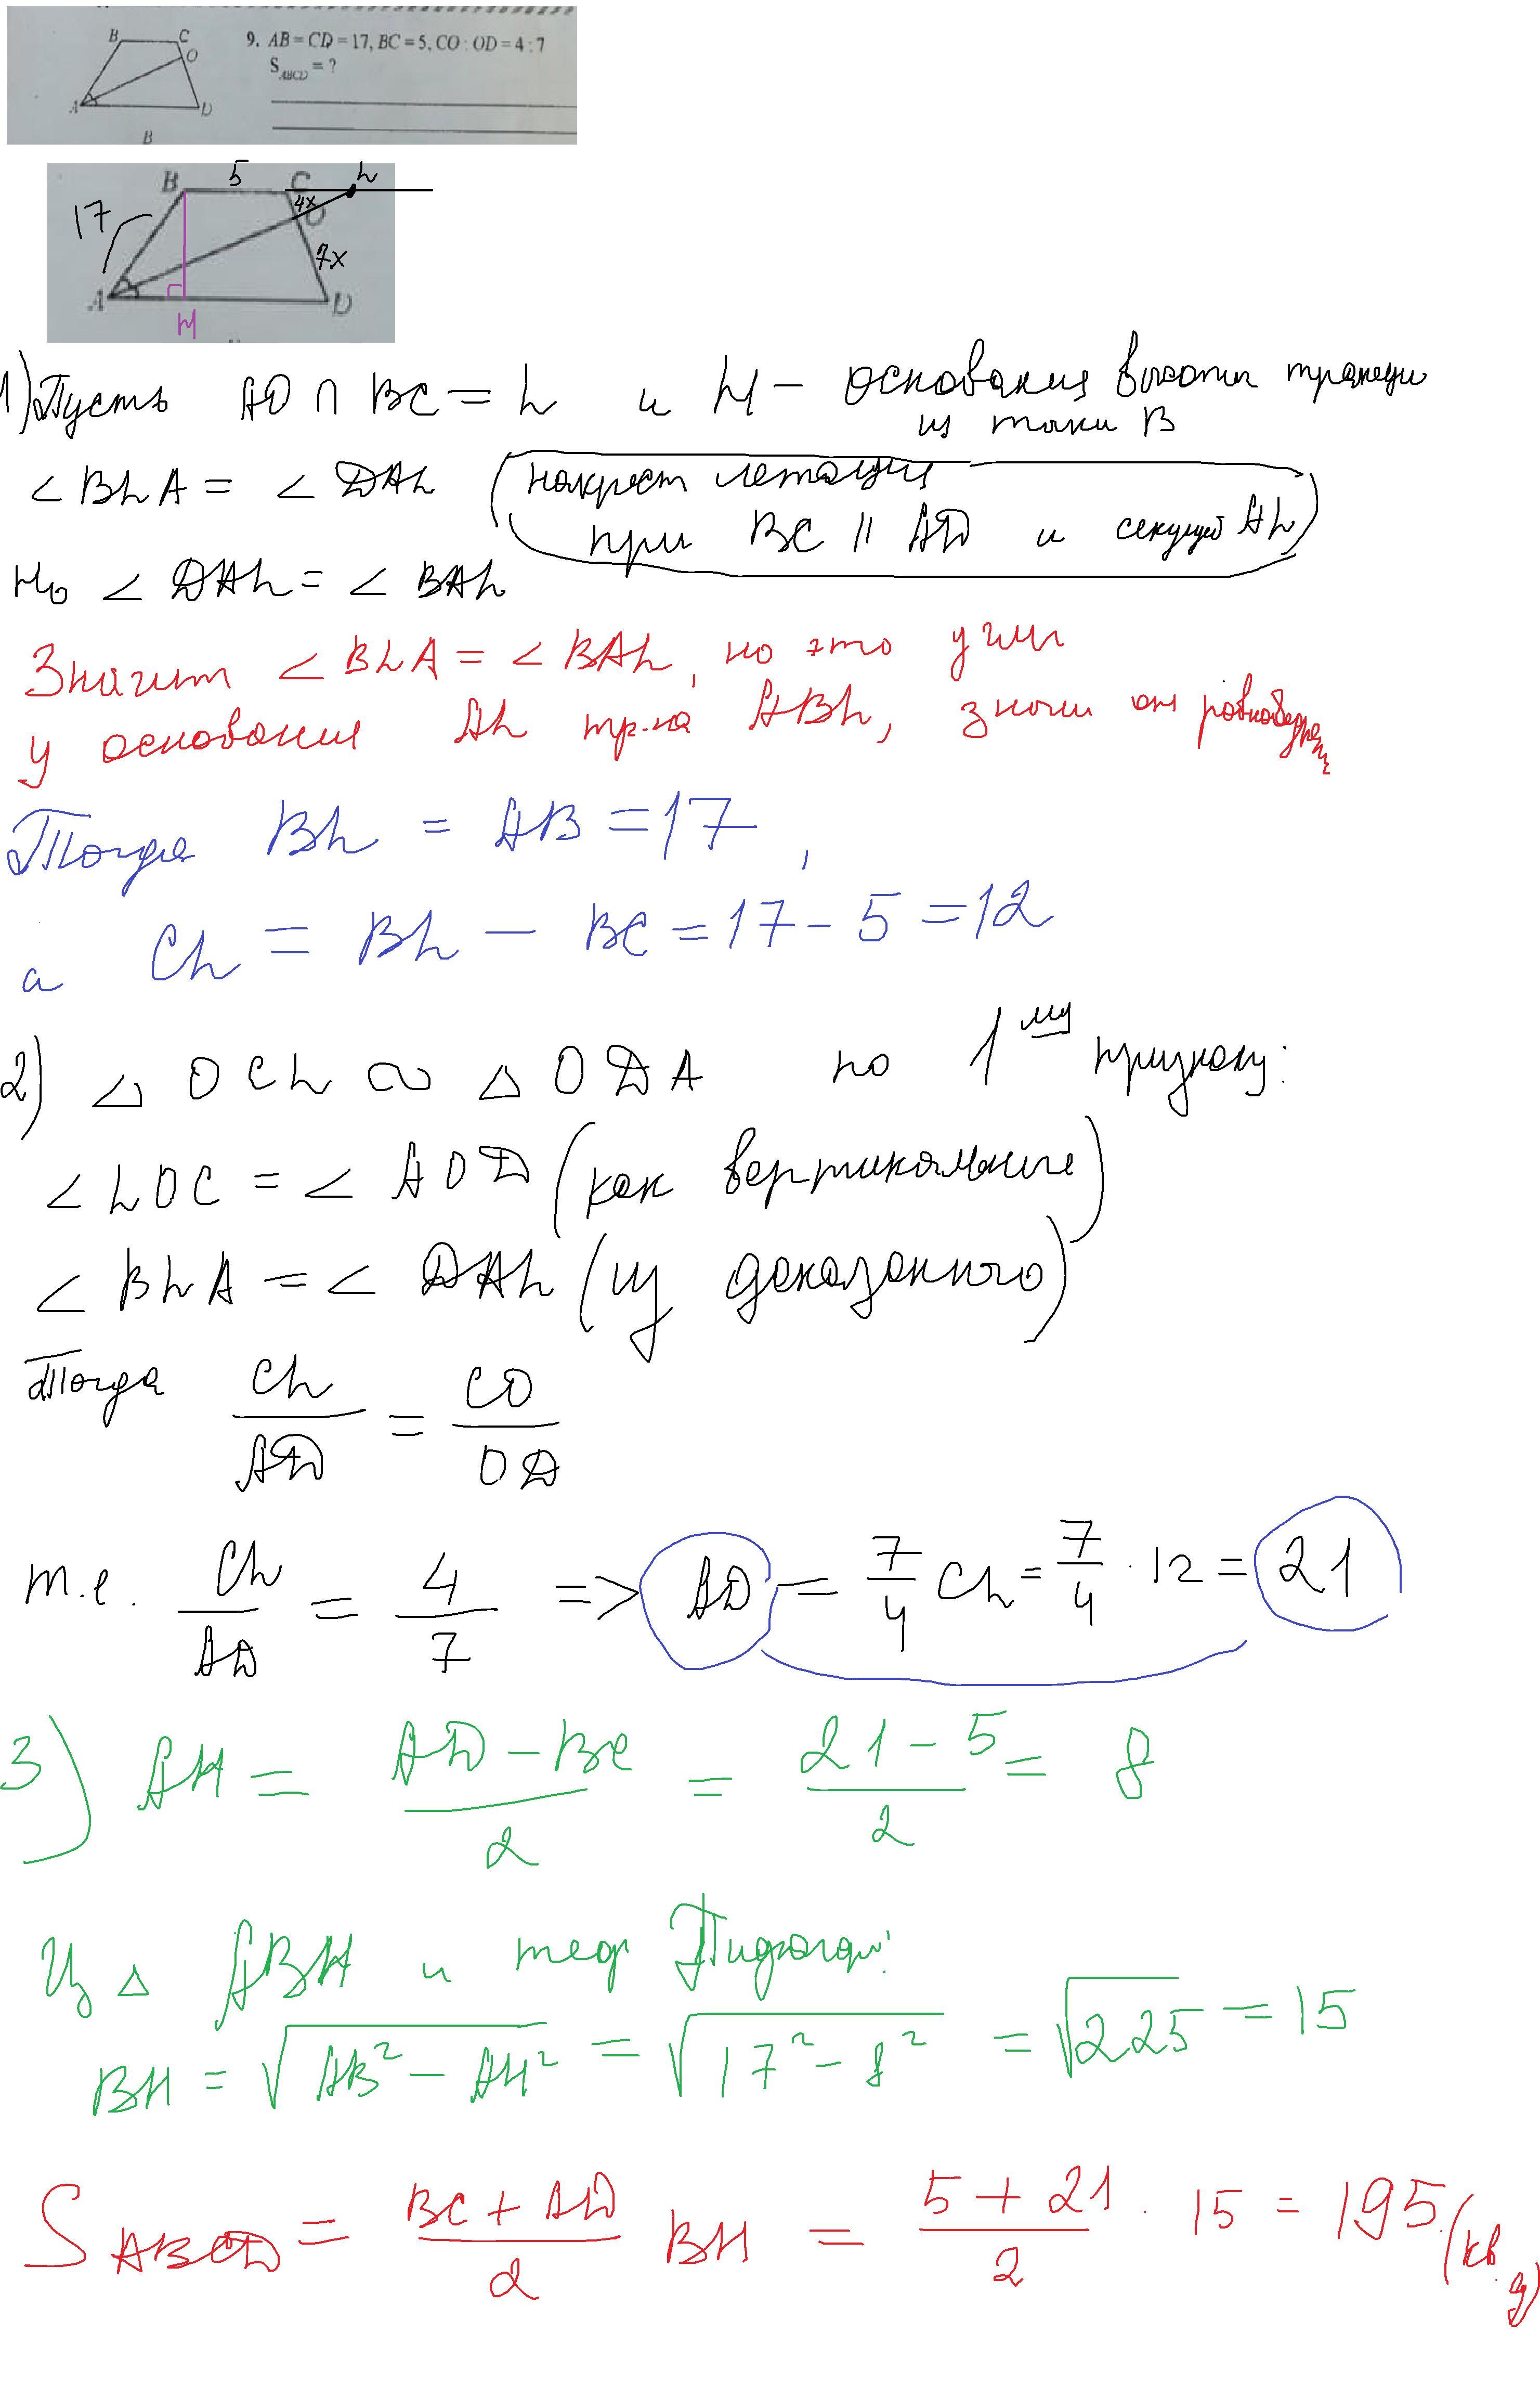 B C O A D
9. AB = CD = 17, BC = 5, CO : OD = 4 : 7
S ABCD = ?
B
B 5 C L
17 4x O
7x
A H D
1) Пусть AO ∩ BC = L и H – основания высоты трапеции
из точки B
∠BLA = ∠DAL (накрест лежащие
при BC || AD и секущей AL)
Но ∠DAL = ∠BAL
Значит ∠BLA = ∠BAL, но это углы
у основания AL тр-ка ABL, значит он равнобедрен
Тогда BL = AB = 17,
а CL = BL – BC = 17 – 5 = 12
2) △OCL ∾ △ODA по 1му признаку:
∠LOC = ∠AOD (как вертикальные)
∠BLA = ∠DAL (из доказанного)
Тогда CL/AD = CO/OD
т.е. CL/AD = 4/7 => AD = 7/4 CL = 7/4 · 12 = 21
3) AH = (AD – BC)/2 = (21 – 5)/2 = 8
Из △ABH и теор Пифагора:
BH = √(AB² – AH²) = √(17² – 8²) = √225 = 15
S ABCD = (BC + AD)/2 BH = (5 + 21)/2 · 15 = 195 (кв. ед)